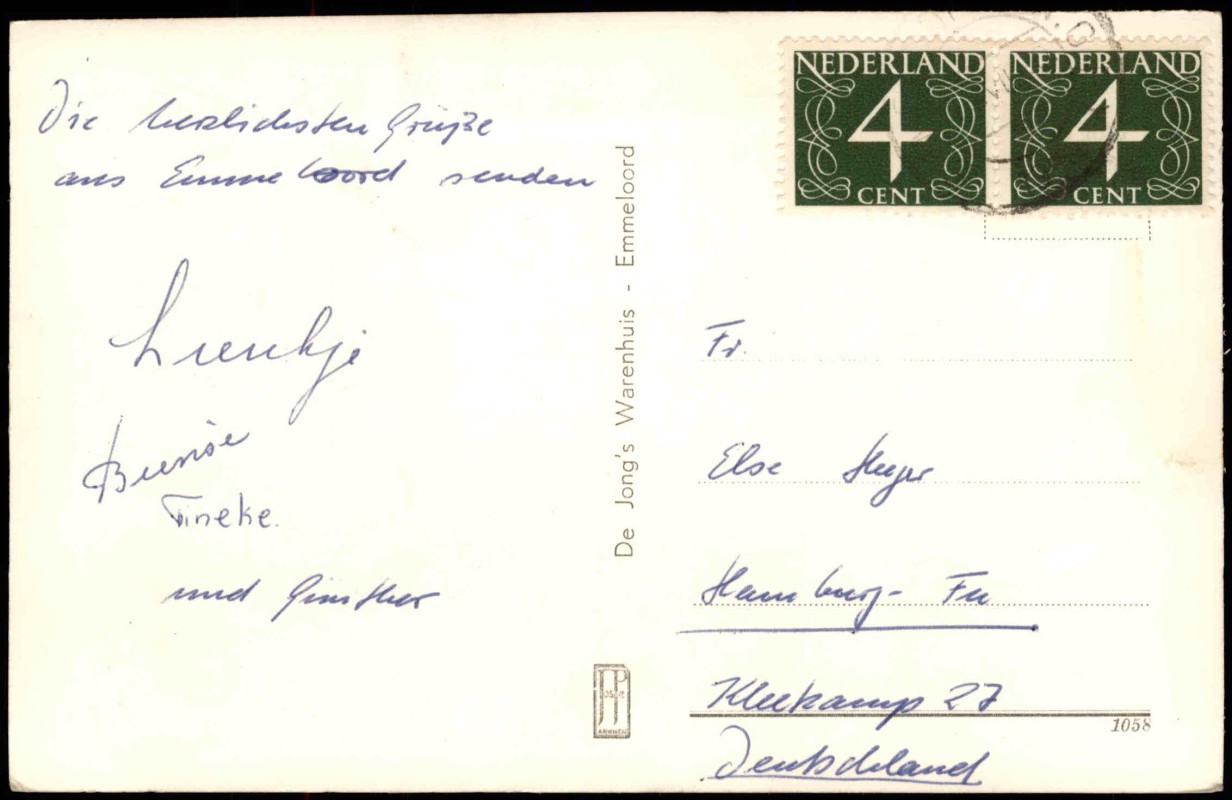 Die herzlichsten Grüße
aus Emmeloord senden
Lientje
Tineke.
und Günther
De Jong's Warenhuis - Emmeloord
NEDERLAND
4
CENT
NEDERLAND
4
CENT
Fr.
Else
Hamburg- Fu
Kleekamp 27
Deutschland
1058
JP
JOSPE
ARNHEM